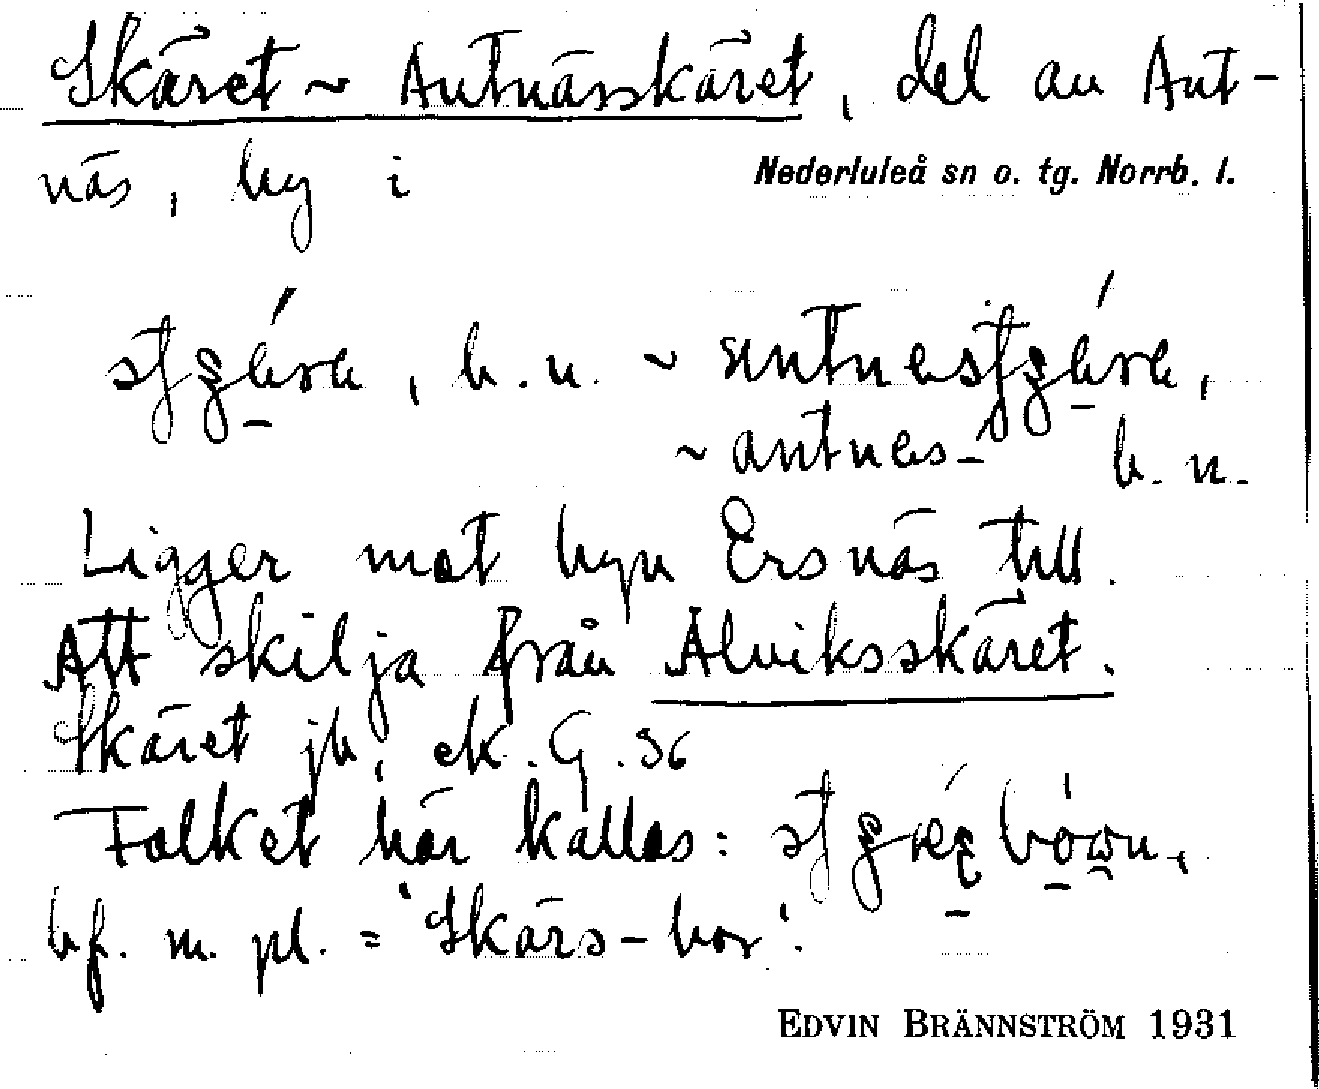 Skäret ~ Antnässkäret, del av Ant-
näs, by i Nederluleå sn o. tg. Norrb. l.
b. n. ~
~ antnes- b. n.
Ligger mot byn Ersnäs till.
Att skilja från Alviksskäret.
Skäret jb, ek. G. 36
Folket här kallas:
bf. m. pl. = 'Skärs-bor'.
EDVIN BRÄNNSTRÖM 1931